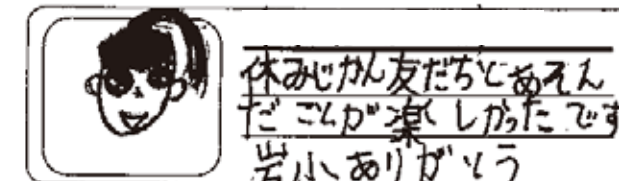 休みじかん友だちとあそん
だことが楽しかったです
岩小ありがとう